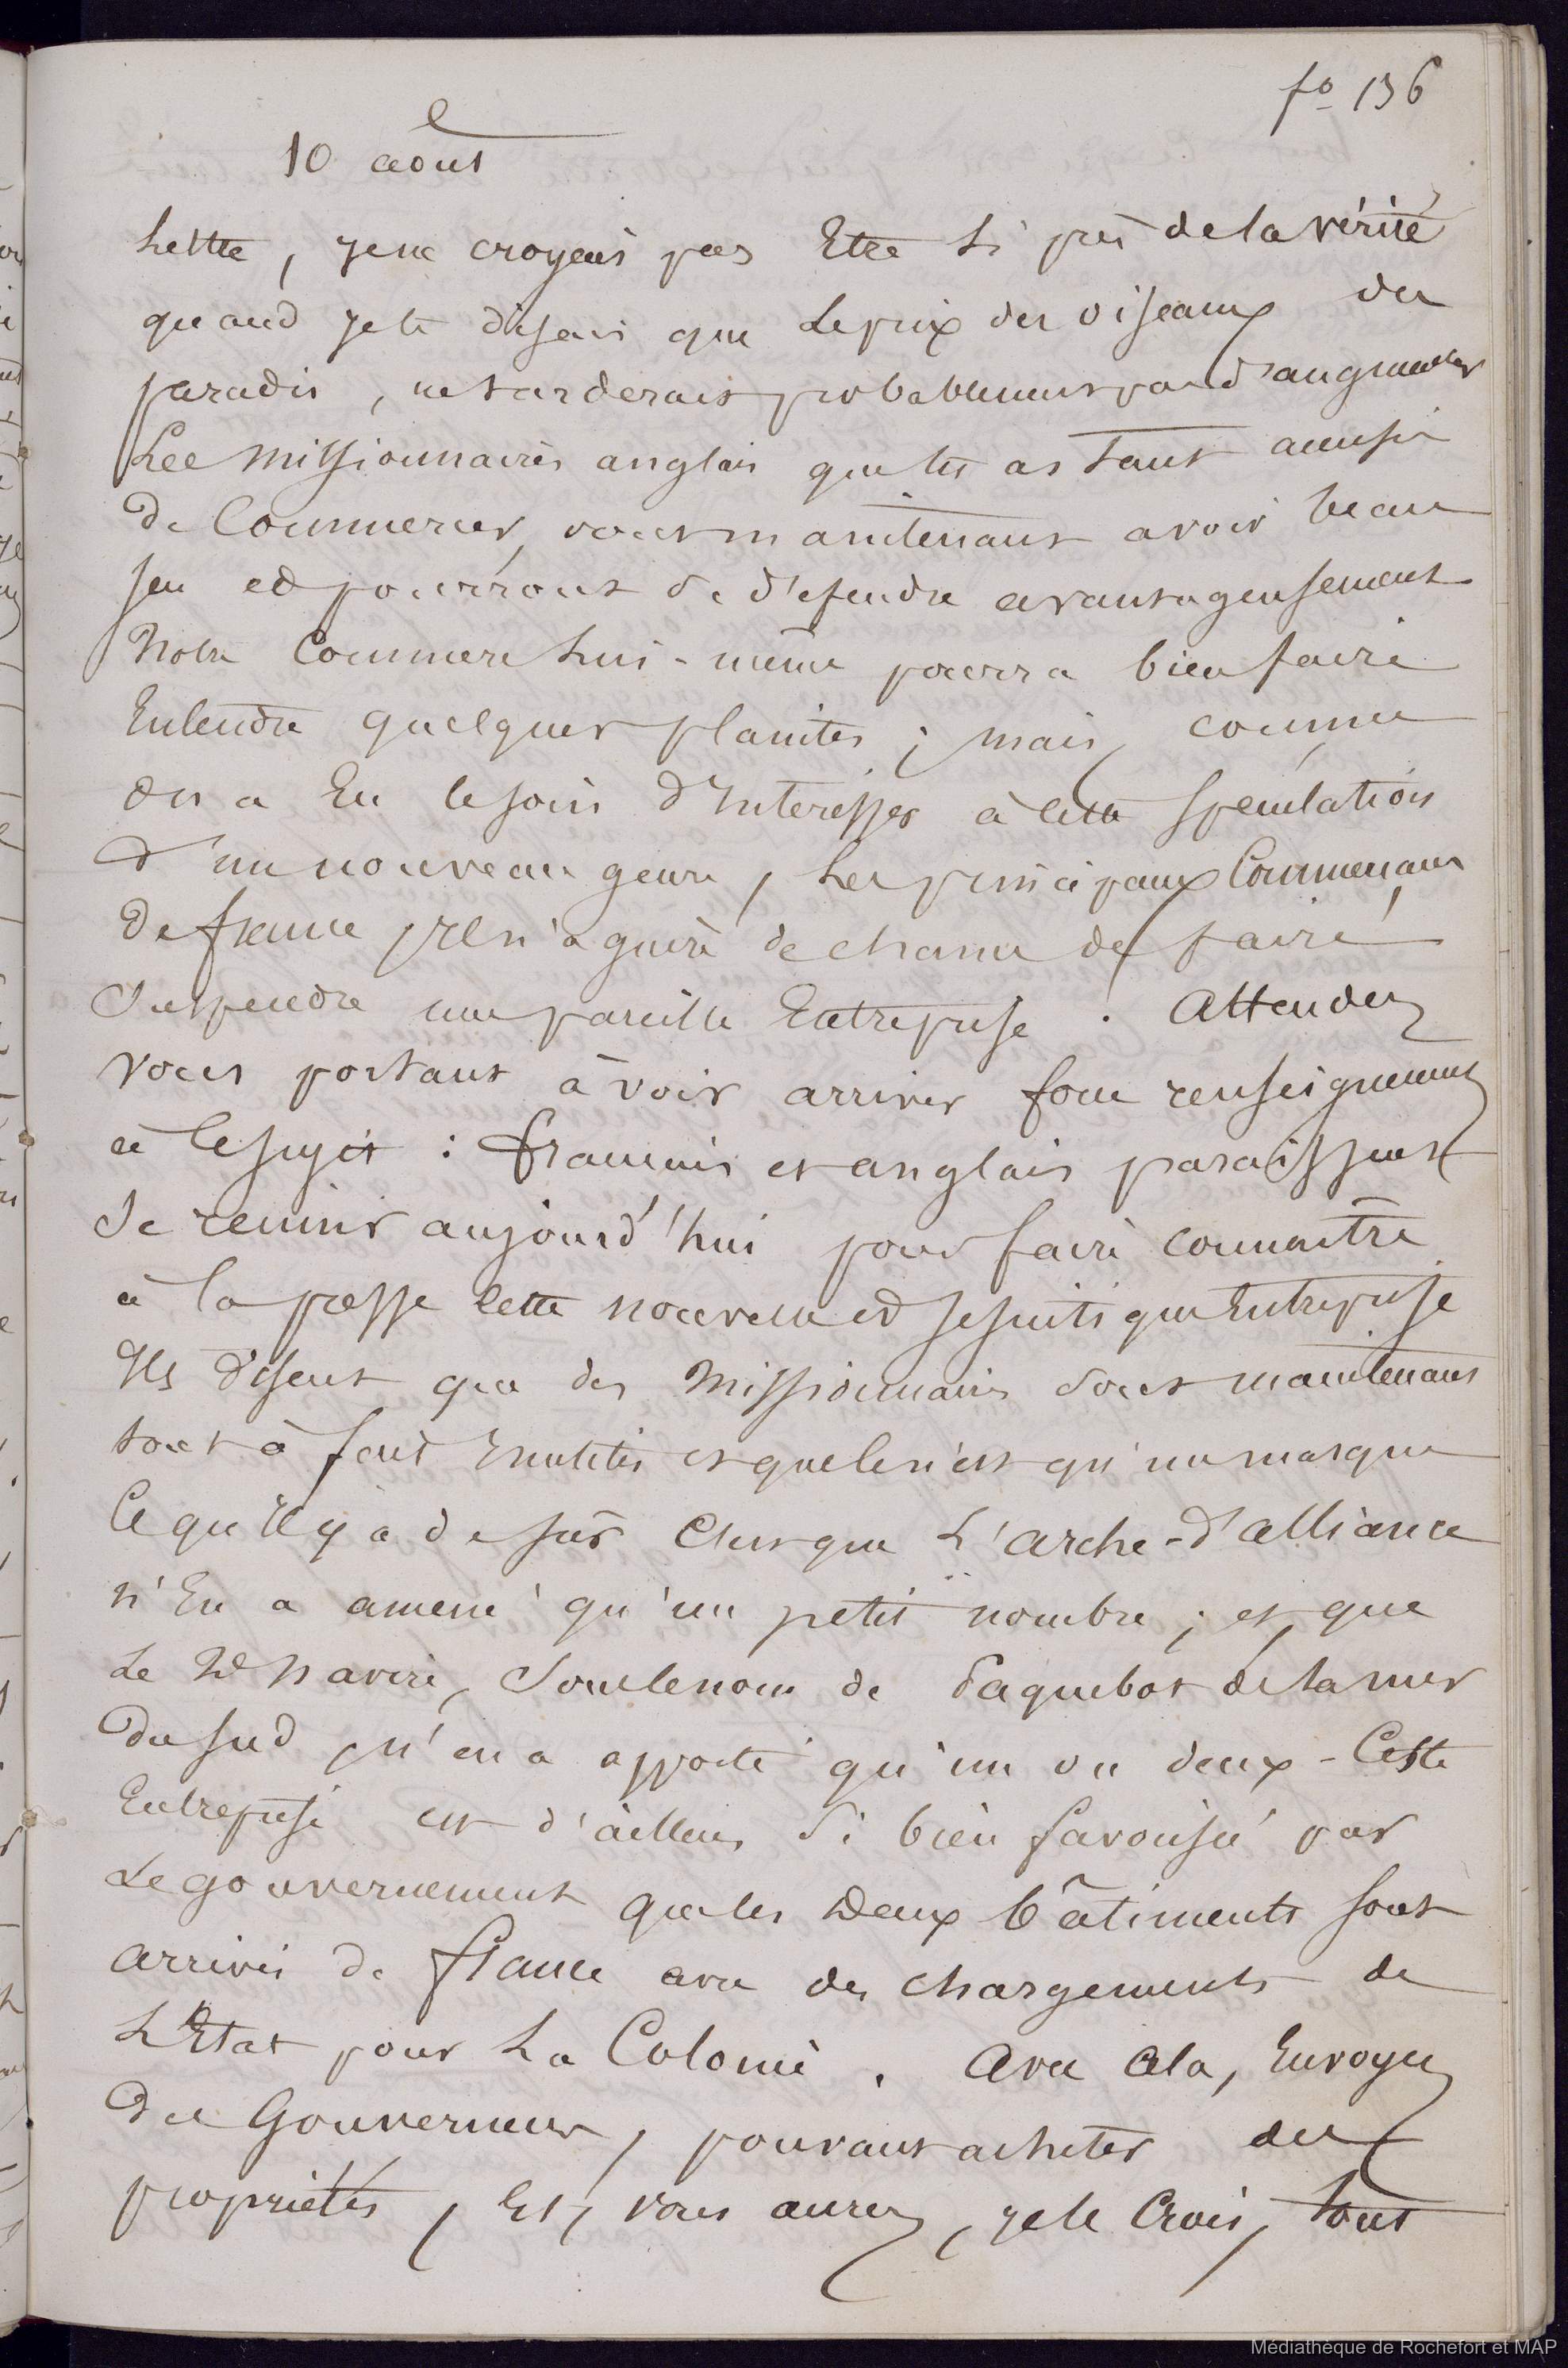 fo 136
10 aout
Lettre, je ne croyais pas Etre Si près de la vérité
quand je te disais que Le prix des oiseaux du
paradis, ne tarderait probablement pas d'augmenter
Les Missionnaires anglais que tu as tant accusés
de Commercer, vont maintenant avoir beau
jeu et pourront se défendre avantageusement
Notre Commerce Lui-même pourra bien faire
Entendre quelques plaintes ; mais, comme
on a Eu le soin d'Interesser à cette Speculation
d'un nouveau genre, Les principaux Commerçans
de france, il n'a guère de chance de faire
Suspendre une pareille Entreprise. Attendez
vous portant à voir arriver sous renseignemens
à ce sujet : français et anglais paraissent
Se reunir aujourd'hui pour faire connaitre
à la presse cette nouvelle et jesuitique Entreprise
Ils disent que des Missionnaires sont maintenant
tout à fait Inutiles et que ce n'est qu'un masque
Ce qu'il y a de sûr C'est que L'arche-d'alliance
n'En a amené qu'un petit nombre ; et que
Le 2d Navire, Sous le nom de Paquebot de la mer
du Sud, n'en a apporté qu'un ou deux - Cette
Entreprise est d'ailleurs Si bien favorisée par
Le gouvernement que les Deux bâtiments sont
arrivés de france avec des chargements de
L'Etat pour La Colonie. Avec Cela, Envoyez
des Gouverneurs, pouvant acheter des
propriétés, Et, vous aurez, je le Crois, tout
Médiathèque de Rochefort et MAP